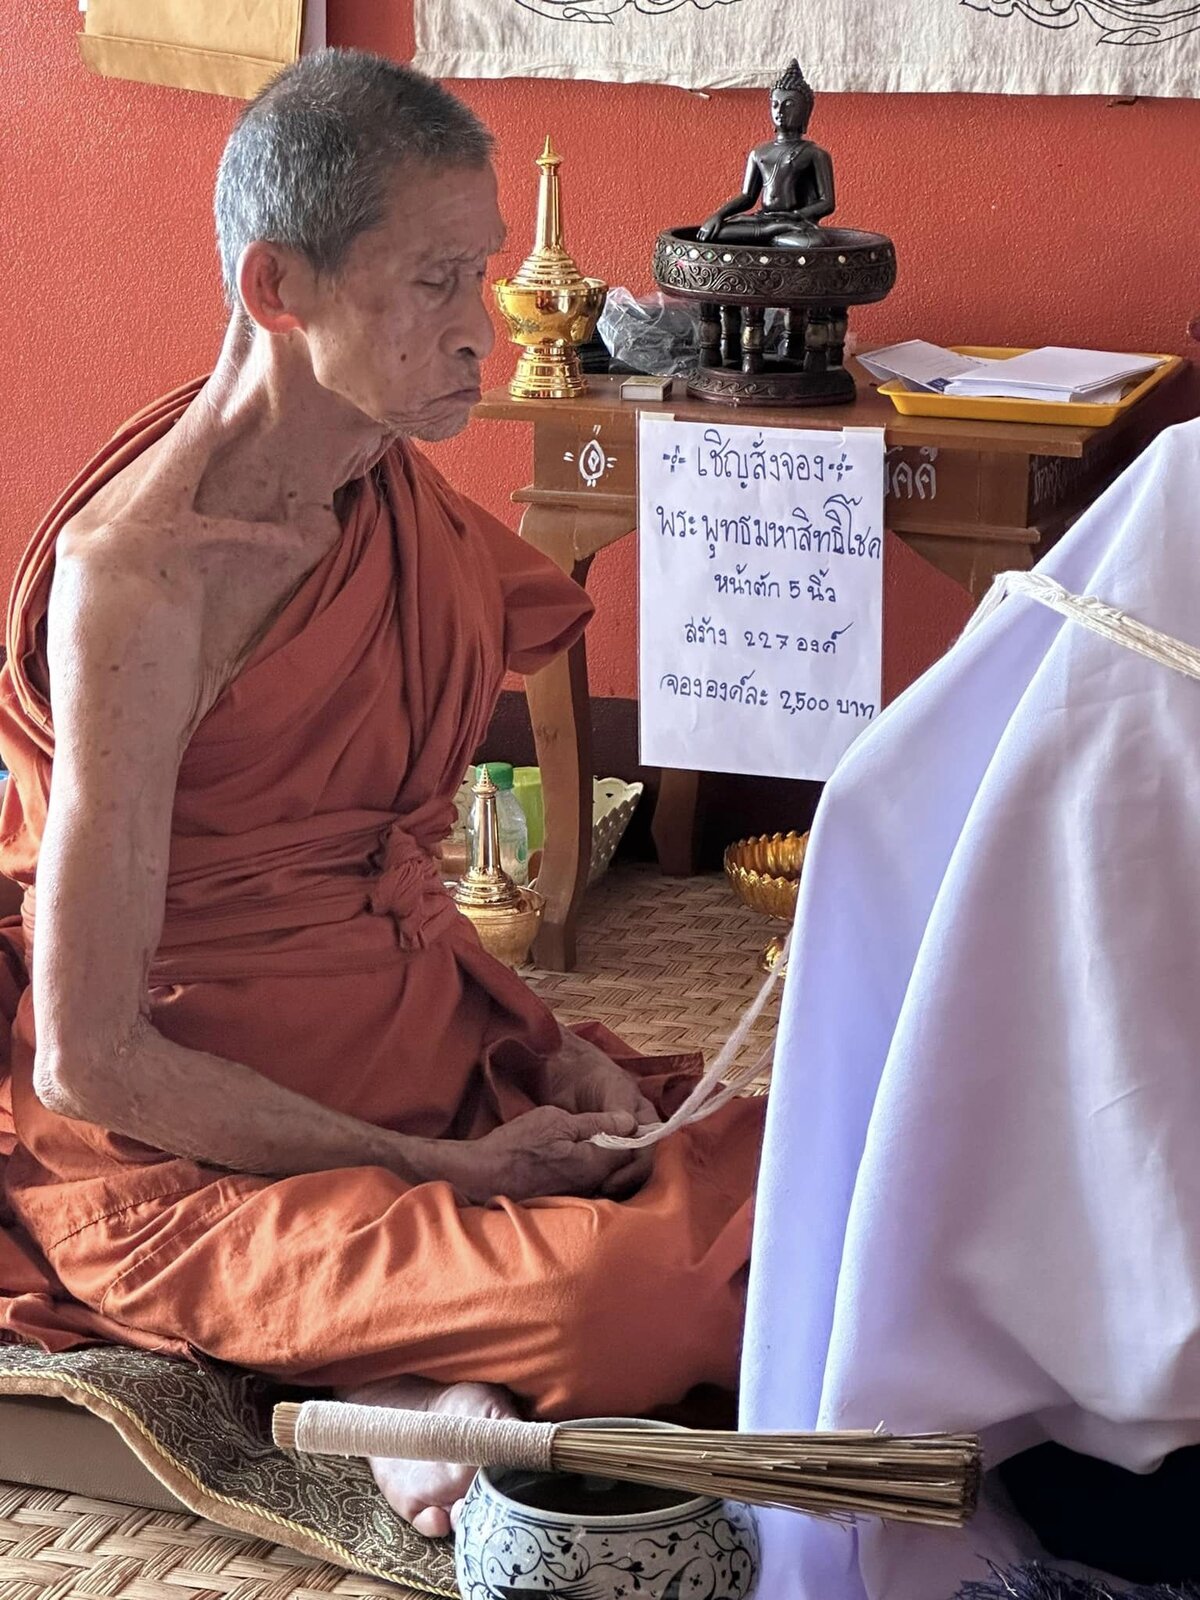 เชิญสั่งจอง
พระพุทธมหาสิทธิโชค
หน้าตัก 5 นิ้ว
สร้าง 227 องค์
จององค์ละ 2,500 บาท